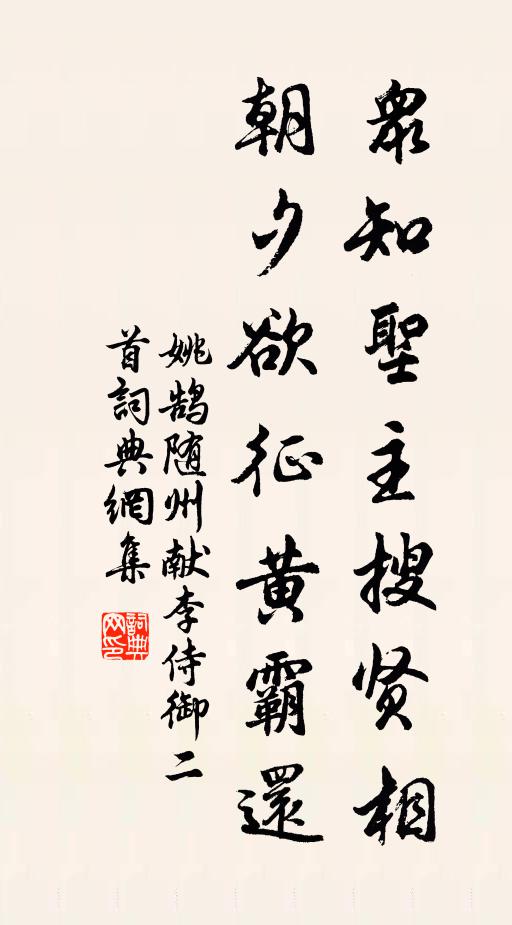 眾知聖主搜贤相
朝夕欲征黄霸還
姚鹄随州献李侍御二
首詞典網集
詞典網印